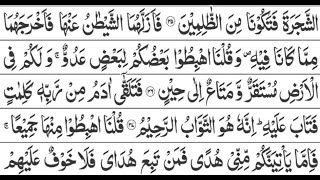 الشَّجَرَةَ فَتَكُوْنَا مِنَ الظّٰلِمِيْنَ ۝۳۵ فَاَزَلَّهُمَا الشَّيْطٰنُ عَنْهَا فَاَخْرَجَهُمَا
مِمَّا كَانَا فِيْهِ ۪ وَ قُلْنَا اهْبِطُوْا بَعْضُكُمْ لِبَعْضٍ عَدُوٌّ ۚ وَ لَكُمْ فِی
الْاَرْضِ مُسْتَقَرٌّ وَّ مَتَاعٌ اِلٰی حِيْنٍ ۝۳۶ فَتَلَقّٰۤی اٰدَمُ مِنْ رَّبِّهٖ كَلِمٰتٍ
فَتَابَ عَلَيْهِ ؕ اِنَّهٗ هُوَ التَّوَّابُ الرَّحِيْمُ ۝۳۷ قُلْنَا اهْبِطُوْا مِنْهَا جَمِيْعًا ۚ
فَاِمَّا يَاْتِيَنَّكُمْ مِّنِّیْ هُدًی فَمَنْ تَبِعَ هُدَایَ فَلَا خَوْفٌ عَلَيْهِمْ